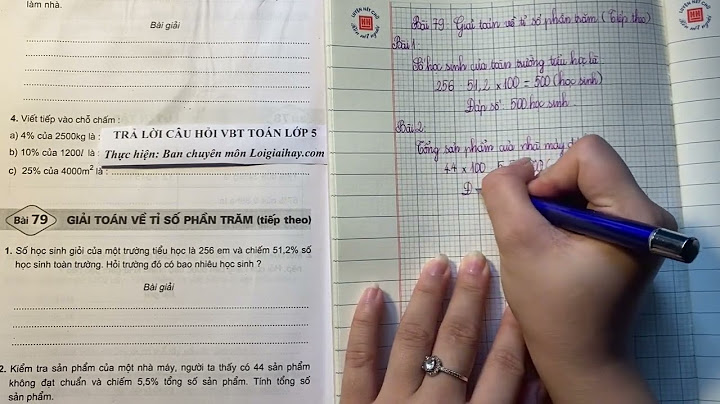 làm nhà.
Bài giải
4. Viết tiếp vào chỗ chấm :
a) 4% của 2500kg là :
b) 10% của 1200l là :
c) 25% của 4000m² là :
TRẢ LỜI CÂU HỎI VBT TOÁN LỚP 5
Thực hiện: Ban chuyên môn Loigiaihay.com
Bài 79 GIẢI TOÁN VỀ TỈ SỐ PHẦN TRĂM (tiếp theo)
1. Số học sinh giỏi của một trường tiểu học là 256 em và chiếm 51,2% số
học sinh toàn trường. Hỏi trường đó có bao nhiêu học sinh ?
Bài giải
2. Kiểm tra sản phẩm của một nhà máy, người ta thấy có 44 sản phẩm
không đạt chuẩn và chiếm 5,5% tổng số sản phẩm. Tính tổng số
sản phẩm.
LUYỆN NÉT CHỮ
HH
Bài 79 Giải toán về tỉ số phần trăm (Tiếp theo)
Bài 1
Số học sinh của toàn trường tiểu học là
256 51,2 x 100 = 500 (học sinh)
Đáp số: 500 học sinh
Bài 2
Tổng sản phẩm của nhà máy
44 x 100
Đ
LUYỆN NÉT CHỮ
HH